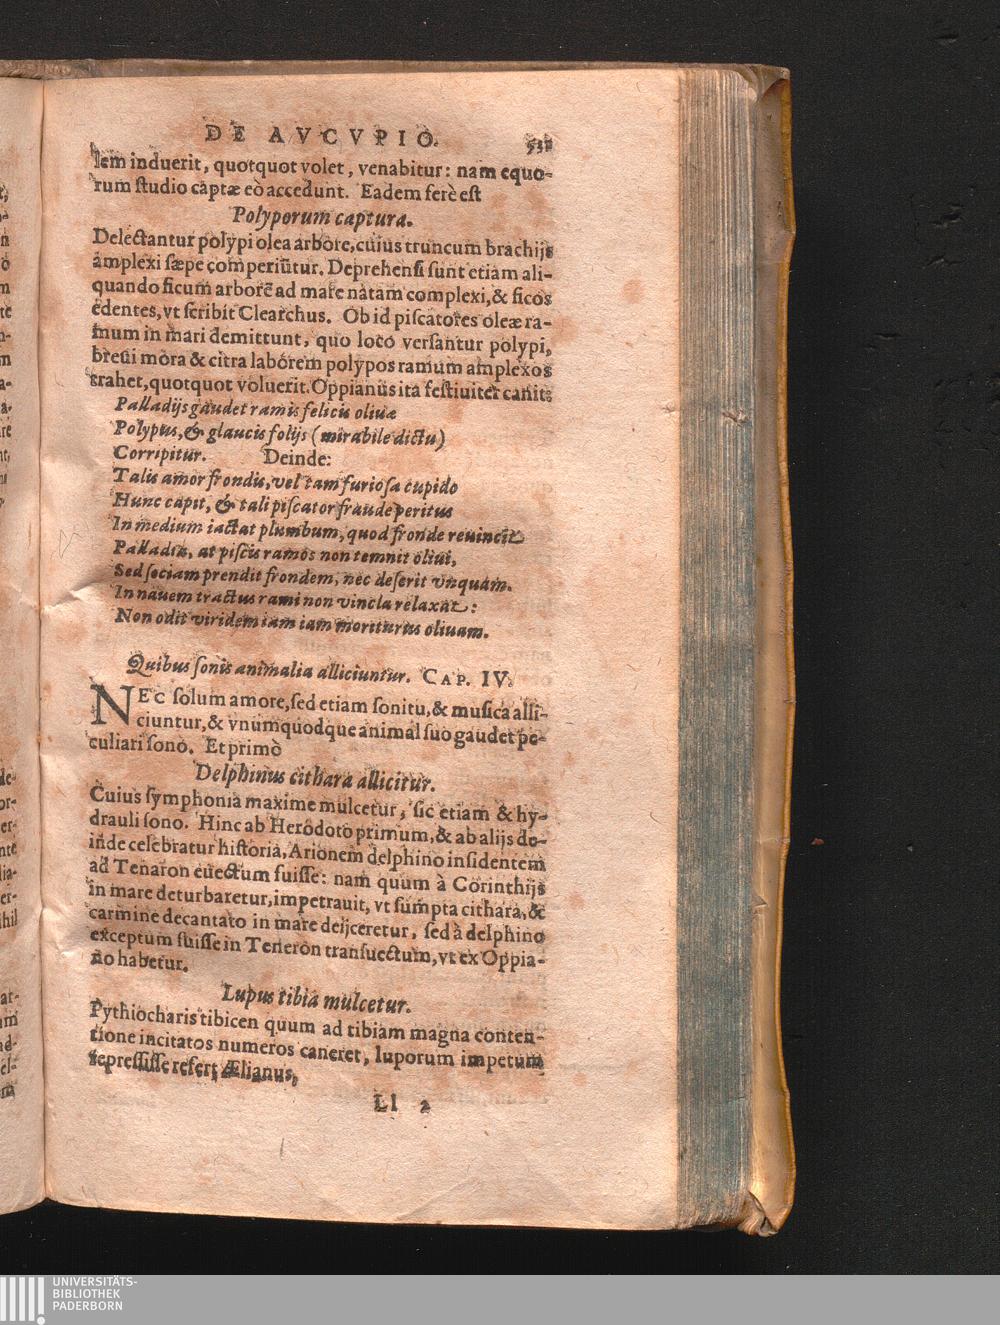 DE AVCVPIO. 531
lem induerit, quotquot volet, venabitur: nam equo-
rum studio captæ eò accedunt. Eadem ferè est
Polyporum captura.
Delectantur polypi olea arbore, cuius truncum brachijs
amplexi sæpe comperiūtur. Deprehensi sunt etiam ali-
quando ficum arborē ad mare natam complexi, & ficos
edentes, vt scribit Clearchus. Ob id piscatores oleæ ra-
mum in mari demittunt, quo loco versantur polypi,
breui mora & citra laborem polypos ramum amplexos
trahet, quotquot voluerit. Oppianus ita festiuiter canit:
Palladijs gaudet ramis felicis oliuæ
Polypus, & glaucis folijs (mirabile dictu)
Corripitur. Deinde:
Talis amor frondis, vel tam furiosa cupido
Hunc capit, & tali piscator fraude peritus
In medium iactat plumbum, quod fronde reuincit
Palladia, at piscis ramos non temnit oliui,
Sed sociam prendit frondem, nec deserit vnquam.
In nauem tractus rami non vincla relaxat:
Non odit viridem iam iam moriturus oliuam.
Quibus sonis animalia alliciuntur. CAP. IV.
NEC solum amore, sed etiam sonitu, & musica alli-
ciuntur, & vnumquodque animal suo gaudet pe-
culiari sono. Et primò
Delphinus cithara allicitur.
Cuius symphonia maxime mulcetur, sic etiam & hy-
drauli sono. Hinc ab Herodoto primum, & ab alijs de-
inde celebratur historia, Arionem delphino insidentem
ad Tenaron euectum fuisse: nam quum à Corinthijs
in mare deturbaretur, impetrauit, vt sumpta cithara, &
carmine decantato in mare deijceretur, sed à delphino
exceptum fuisse in Teneron transuectum, vt ex Oppia-
no habetur.
Lupus tibia mulcetur.
Pythiocharis tibicen quum ad tibiam magna conten-
tione incitatos numeros caneret, luporum impetum
repressisse refert Ælianus,
Ll 2
UNIVERSITÄTS-
BIBLIOTHEK
PADERBORN